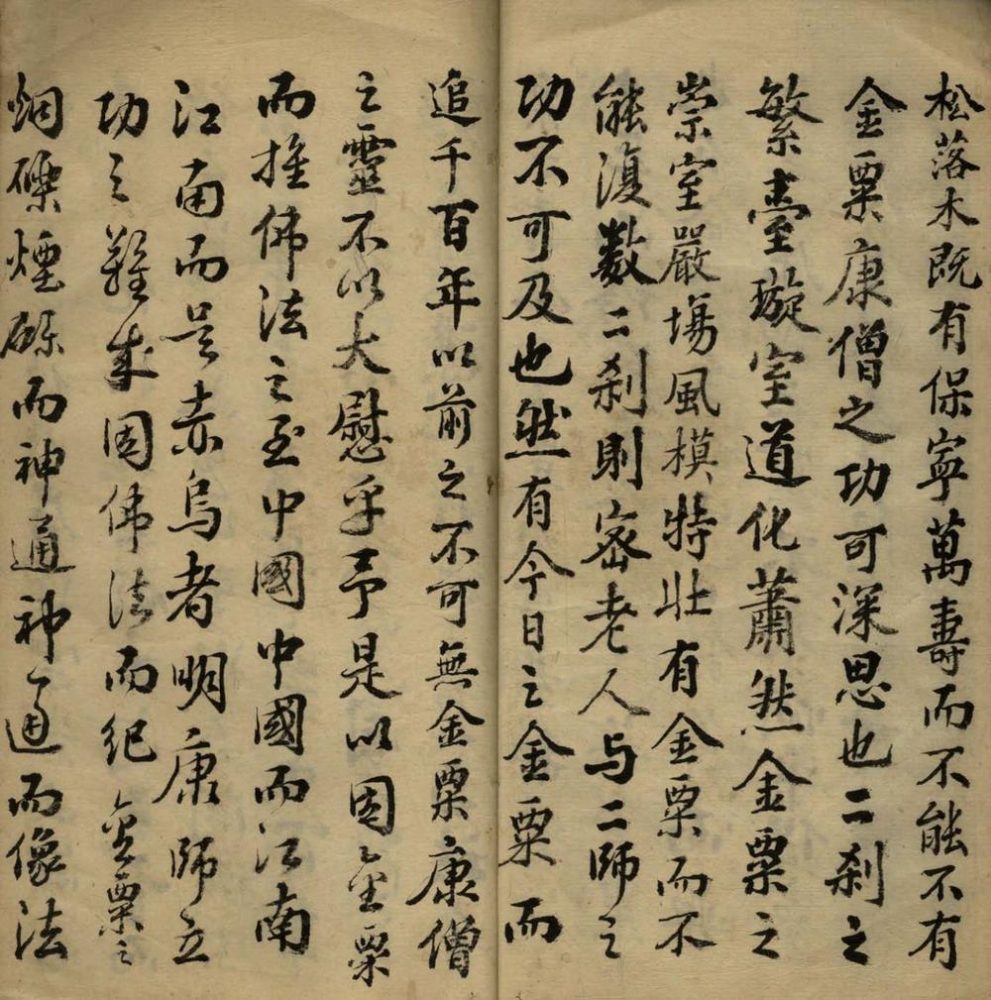 松落木既有保寧萬壽而不能不有
金粟康僧之功可深思也二刹之
繁臺璇室道化蕭然金粟之
崇室嚴塲風模特壯有金粟而不
能復数二刹則密老人与二師之
功不可及也然有今日之金粟而
追千百年以前之不可無金粟康僧
之靈不以大慰乎予是以因金粟
而推佛法之至中國中國而江南
江南而吴赤烏者明康師立
功之難成因佛法而紀金粟之
煙而神通神通而像法